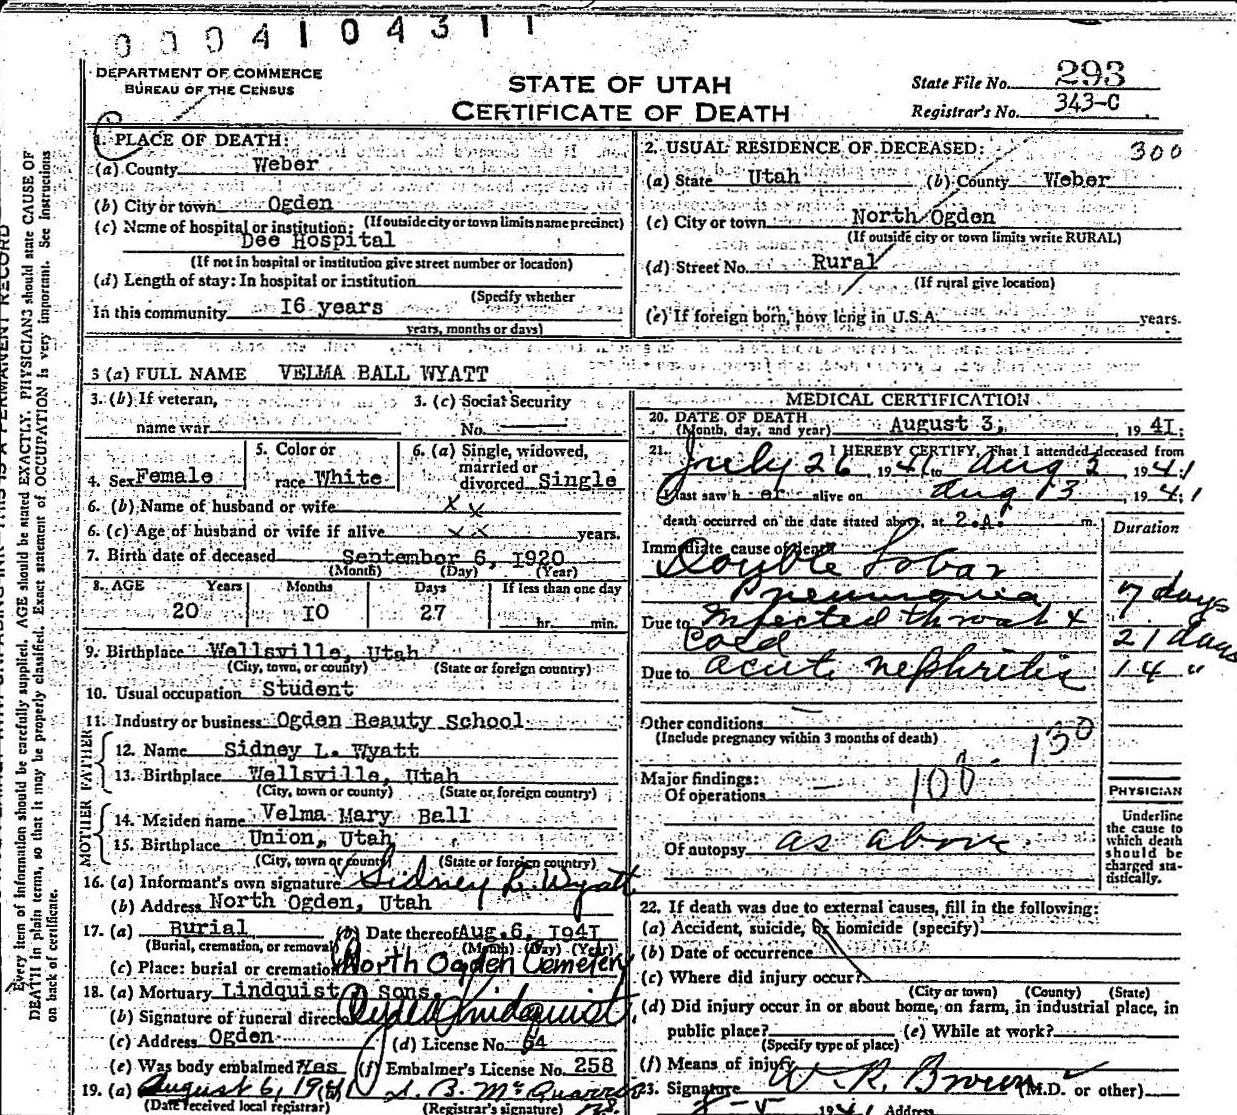 0004104311
DEPARTMENT OF COMMERCE
BUREAU OF THE CENSUS
STATE OF UTAH
CERTIFICATE OF DEATH
State File No. 293
Registrar's No. 343-C
1. PLACE OF DEATH:
(a) County Weber
(b) City or town Ogden
(If outside city or town limits name precinct)
(c) Name of hospital or institution:
Dee Hospital
(If not in hospital or institution give street number or location)
(d) Length of stay: In hospital or institution
(Specify whether
In this community 16 years
years, months or days)
2. USUAL RESIDENCE OF DECEASED: 300
(a) State Utah (b) County Weber
(c) City or town North Ogden
(If outside city or town limits write RURAL)
(d) Street No. Rural
(If rural give location)
(e) If foreign born, how long in U.S.A. years.
3 (a) FULL NAME VELMA BALL WYATT
3. (b) If veteran,
name war
3. (c) Social Security
No.
4. Sex Female
5. Color or
race White
6. (a) Single, widowed,
married or
divorced Single
6. (b) Name of husband or wife x x
6. (c) Age of husband or wife if alive x x years.
7. Birth date of deceased September 6, 1920
(Month) (Day) (Year)
8. AGE Years Months Days If less than one day
20 10 27 hr. min.
9. Birthplace Wellsville, Utah
(City, town, or county) (State or foreign country)
10. Usual occupation Student
11. Industry or business Ogden Beauty School
FATHER
12. Name Sidney L. Wyatt
13. Birthplace Wellsville, Utah
(City, town or county) (State or foreign country)
MOTHER
14. Maiden name Velma Mary Ball
15. Birthplace Union, Utah
(City, town or county) (State or foreign country)
16. (a) Informant's own signature Sidney L. Wyatt
(b) Address North Ogden, Utah
17. (a) Burial (b) Date thereof Aug. 6, 1941
(Burial, cremation, or removal) (Month) (Day) (Year)
(c) Place: burial or cremation North Ogden Cemetery
18. (a) Mortuary Lindquist & Sons
(b) Signature of funeral director Clyde Lindquist
(c) Address Ogden (d) License No. 64
(e) Was body embalmed? Yes (f) Embalmer's License No. 258
19. (a) August 6, 1941
(Date received local registrar) (Registrar's signature)
MEDICAL CERTIFICATION
20. DATE OF DEATH
(Month, day, and year) August 3, 1941
21. I HEREBY CERTIFY, That I attended deceased from
July 26 1941 to Aug 3 1941
I last saw her alive on Aug 3 1941
death occurred on the date stated above, at 2 A. m.
Duration
Immediate cause of death
Double Lobar
Pneumonia 7 days
Due to Infected throat &
Cold 21 days
Due to acute nephritis 14 "
Other conditions
(Include pregnancy within 3 months of death) 130
Major findings:
Of operations 108
Of autopsy as above
PHYSICIAN
Underline
the cause to
which death
should be
charged sta-
tistically.
22. If death was due to external causes, fill in the following:
(a) Accident, suicide, or homicide (specify)
(b) Date of occurrence
(c) Where did injury occur?
(City or town) (County) (State)
(d) Did injury occur in or about home, on farm, in industrial place, in
public place? (e) While at work?
(Specify type of place)
(f) Means of injury
23. Signature W. R. Brown (M.D. or other)
1941 Address
Every item of information should be carefully supplied. AGE should be stated EXACTLY. PHYSICIANS should state CAUSE OF
DEATH in plain terms, so that it may be properly classified. Exact statement of OCCUPATION is very important. See Instructions
on back of certificate.